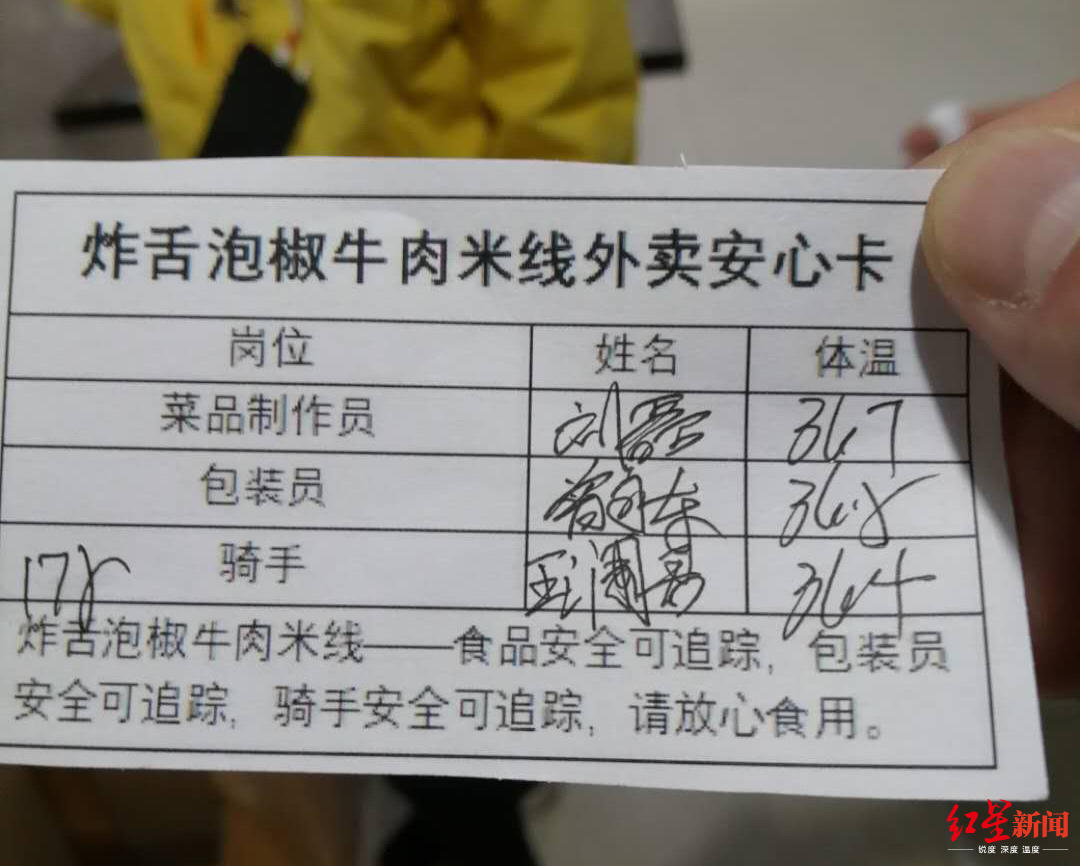 炸舌泡椒牛肉米线外卖安心卡
岗位 姓名 体温
菜品制作员 刘 36.7
包装员 36.8
178 骑手 36.4
炸舌泡椒牛肉米线——食品安全可追踪，包装员
安全可追踪，骑手安全可追踪，请放心食用。
红星新闻
锐度 深度 温度